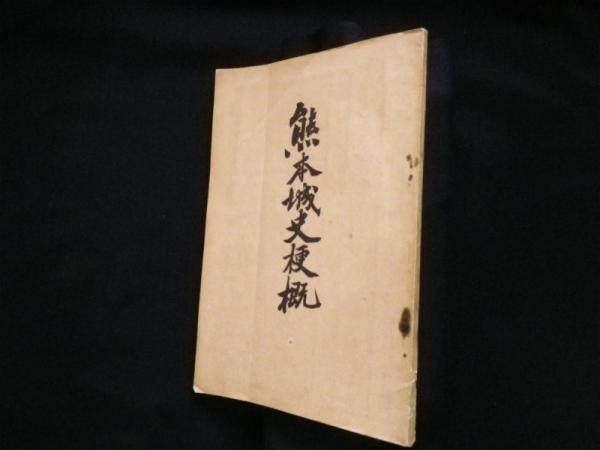 熊本城史梗概